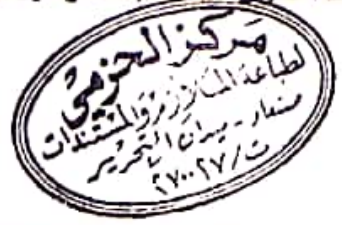 مركز الحزمي
لطباعة الملازم والمستندات
صنعاء - ميدان التحرير
ت / ٢٧٠٠٢٧